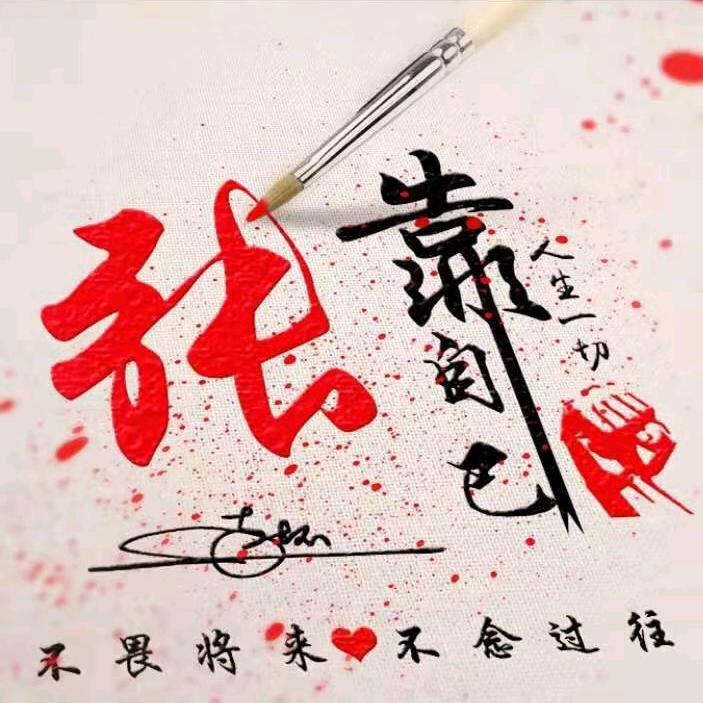 张
靠自己
人生一切
不畏将来❤不念过往